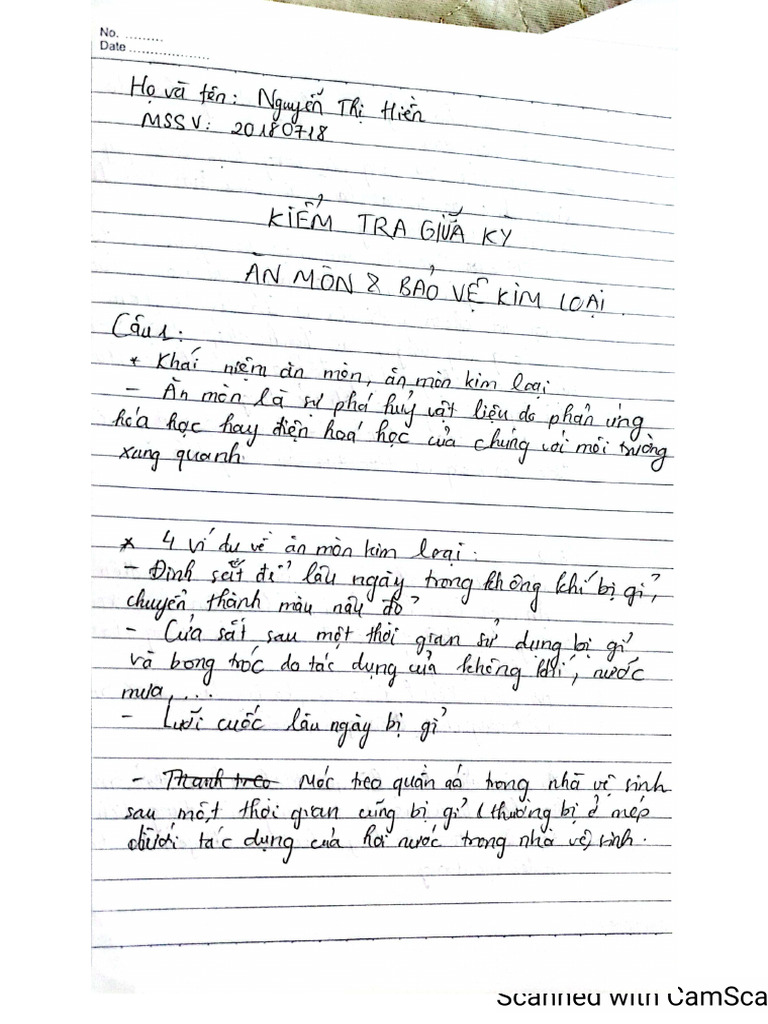 No. .........
Date ...................
Họ và tên: Nguyễn Thị Hiền
MSSV: 20180718
KIỂM TRA GIỮA KỲ
ĂN MÒN & BẢO VỆ KIM LOẠI
Câu 1:
* Khái niệm ăn mòn, ăn mòn kim loại
- Ăn mòn là sự phá huỷ vật liệu do phản ứng
hóa học hay điện hoá học của chúng với môi trường
xung quanh.
* 4 ví dụ về ăn mòn kim loại:
- Đinh sắt để lâu ngày trong không khí bị gỉ,
chuyển thành màu nâu đỏ
- Cửa sắt sau một thời gian sử dụng bị gỉ
và bong tróc do tác dụng của không khí, nước
mưa, ...
- Lưỡi cuốc lâu ngày bị gỉ
- Thanh treo Móc treo quần áo trong nhà vệ sinh
sau một thời gian cũng bị gỉ (thường bị ở mép
dưới tác dụng của hơi nước trong nhà vệ sinh.
Scanned with CamSca